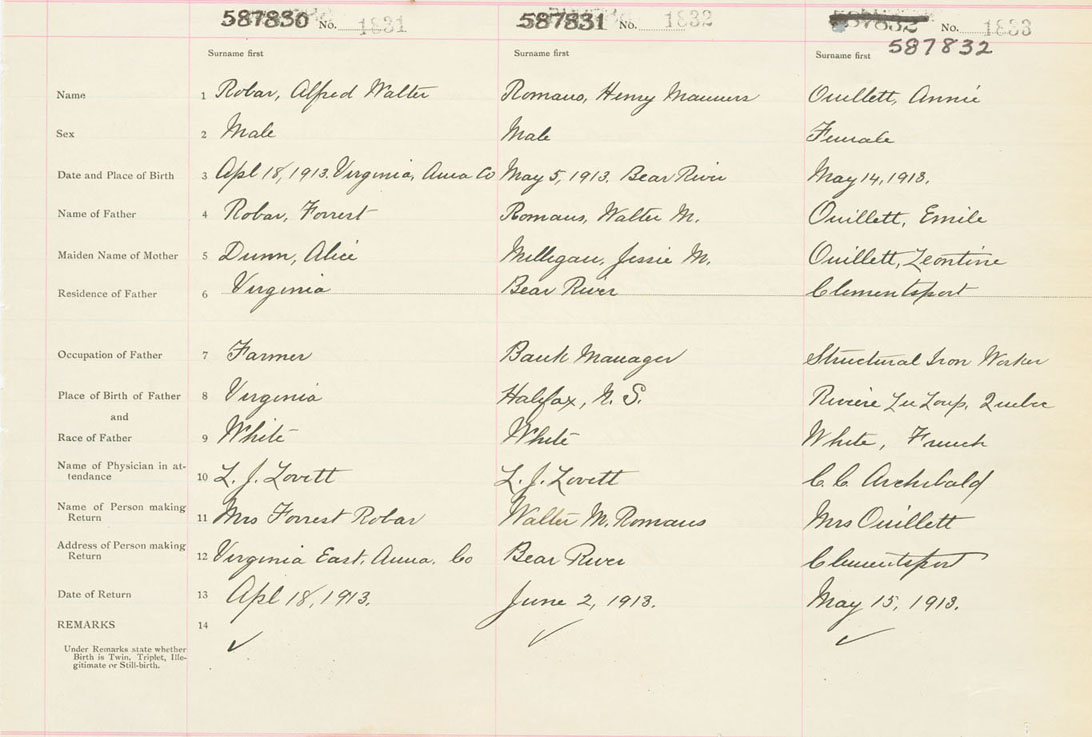 587830 No. 1831 587831 No. 1832 587832 No. 1833
Surname first Surname first Surname first 587832
Name 1 Robar, Alfred Walter Romans, Henry Manners Ouillett, Annie
Sex 2 Male Male Female
Date and Place of Birth 3 Apl 18, 1913. Virginia, Anna Co May 5, 1913. Bear River May 14, 1913.
Name of Father 4 Robar, Forrest Romans, Walter M. Ouillett, Emile
Maiden Name of Mother 5 Dunn, Alice Milligan, Jessie M. Ouillett, Leontine
Residence of Father 6 Virginia Bear River Clementsport
Occupation of Father 7 Farmer Bank Manager Structural Iron Worker
Place of Birth of Father 8 Virginia Halifax, N. S. Riviere Du Loup, Quebec
and
Race of Father 9 White White White, French
Name of Physician in at-
tendance 10 L. J. Lovitt L. J. Lovitt C. C. Archibald
Name of Person making
Return 11 Mrs Forrest Robar Walter M. Romans Mrs Ouillett
Address of Person making
Return 12 Virginia East, Anna. Co Bear River Clementsport
Date of Return 13 Apl 18, 1913. June 2, 1913. May 15, 1913.
REMARKS 14
Under Remarks state whether
Birth is Twin, Triplet, Ille-
gitimate or Still-birth.